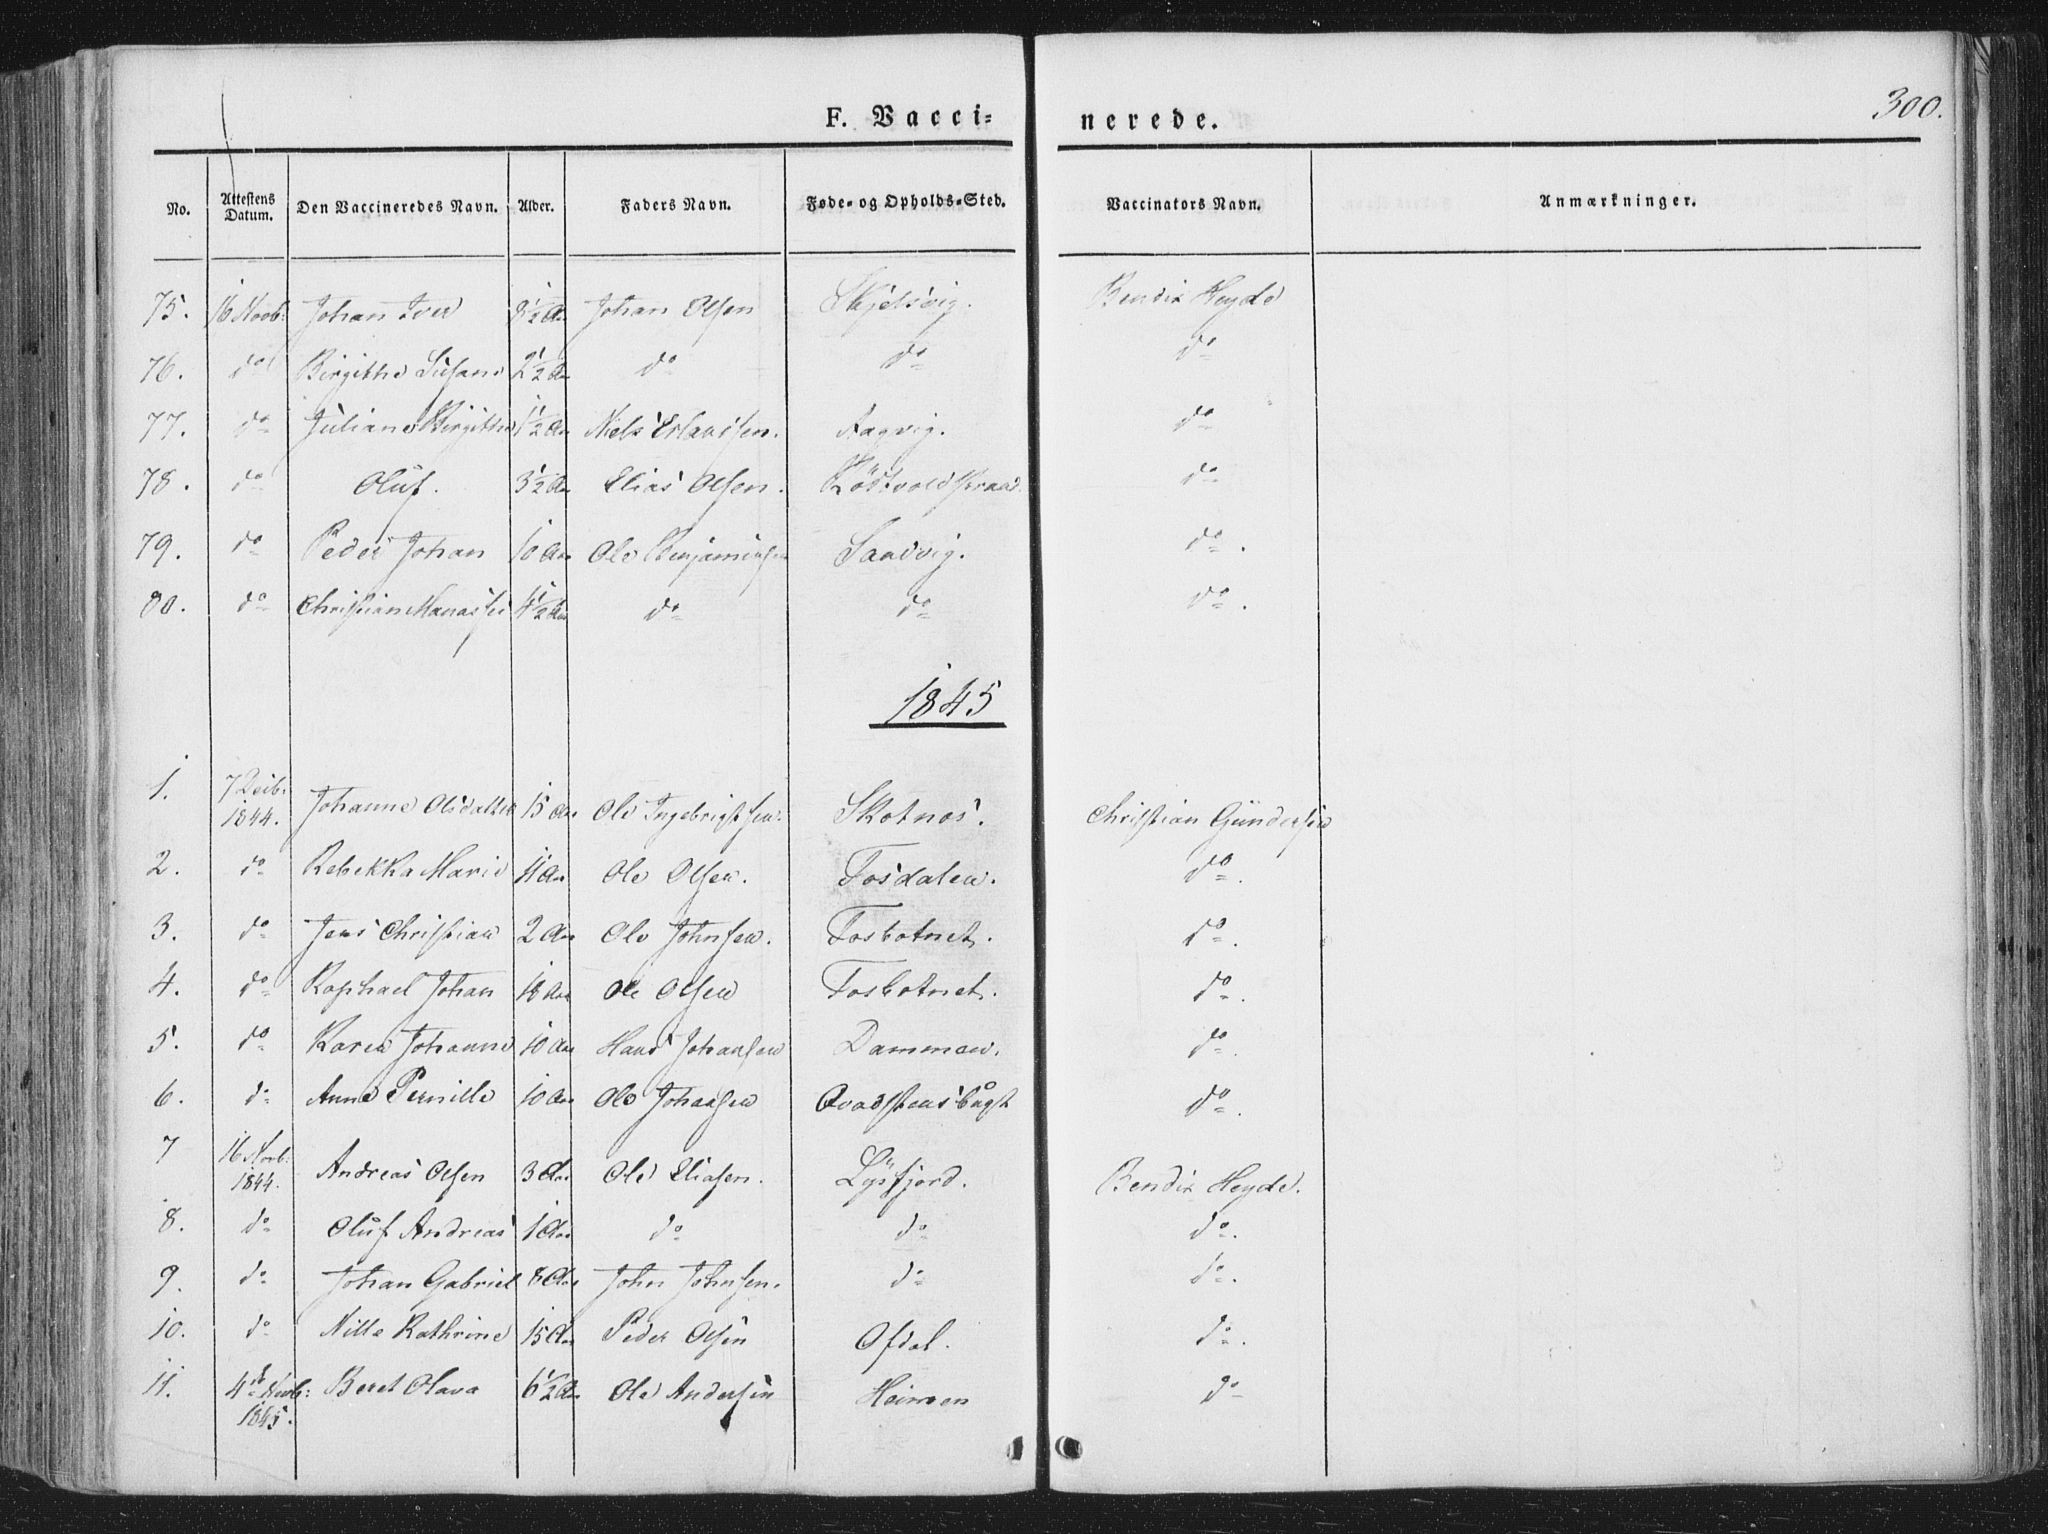 300.
F. Vacci= nerede.
No. Attestens Datum. Den Vaccineredes Navn. Alder. Faders Navn. Føde- og Opholds-Sted. Vaccinators Navn. Anmærkninger.
75. 16 Novb: Johan Iver 8½ Aar Johan Olsen Skjelsvig. Bendix Heyde
76. do Birgithe Susane 2½ Aar do do do
77. do Juliane Birgithe 1½ Aar Niels Erlandsen. Aagvig. do
78. do Oluf. 3½ Aar Elias Olsen. do
79. do Peder Johan 10 Aar Ole Benjaminsen Sandvig. do.
80. do Christian Manasse 4½ Aar do do do.
1845
1. 7 Decb: 1844. Johanne Olsdatter 15 Aar Ole Ingebrigtsen. Skotnes. Christian Gundersen
2. do Rebekka Marie 11 Aar Ole Olsen. Fosdalen. do.
3. do Jens Christian 2 Aar Ole Johnsen. Fosbotnet. do.
4. do Raphael Johan 18 Aar Ole Olsen Fosbotnet. do.
5. do Karen Johanne 10 Aar Hans Johansen Dammen. do.
6. do Anne Pernille 10 Aar Ole Johansen Qvadstensbugt do.
7 16 Novb: 1844. Andreas Olsen 3 Aar Ole Eliasen. Lysfjord. Bendix Heyde.
8. do Oluf Andreas 1 Aar do do do.
9. do Johan Gabriel 8 Aar John Johnsen. do do.
10. do Nilla Kathrine 15 Aar Peder Olsen Ofdal. do.
11. 4de 1845. Beret Olava 6½ Aar Ole Andersen Heimen do